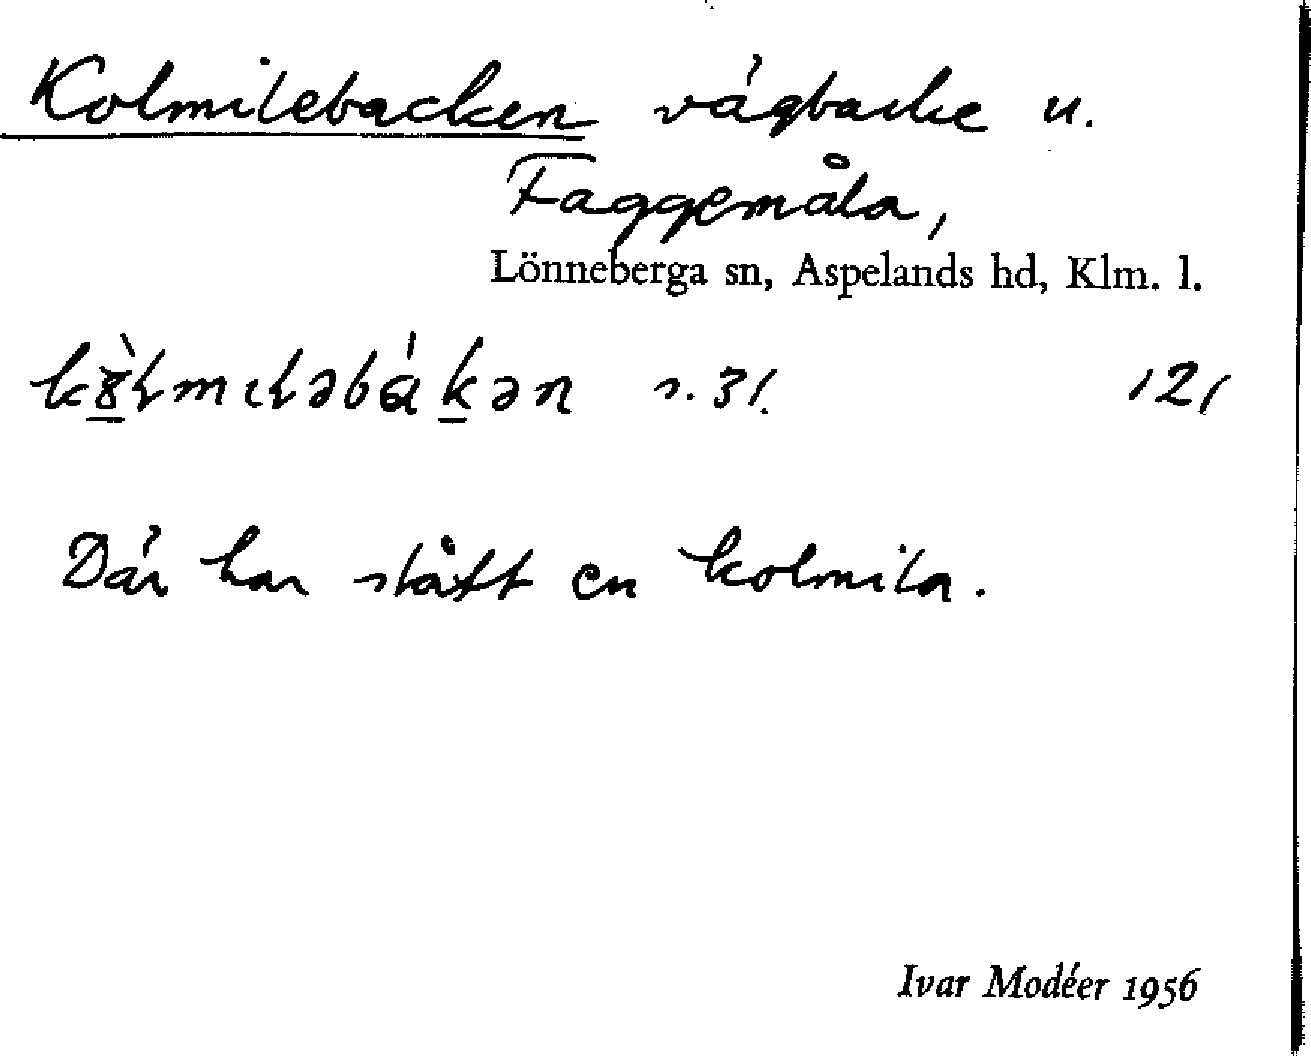 Kolmilebacken vägbacke u.
Faggemåla,
Lönneberga sn, Aspelands hd, Klm. l.
s. 31. 121
Där har stått en kolmila.
Ivar Modéer 1956